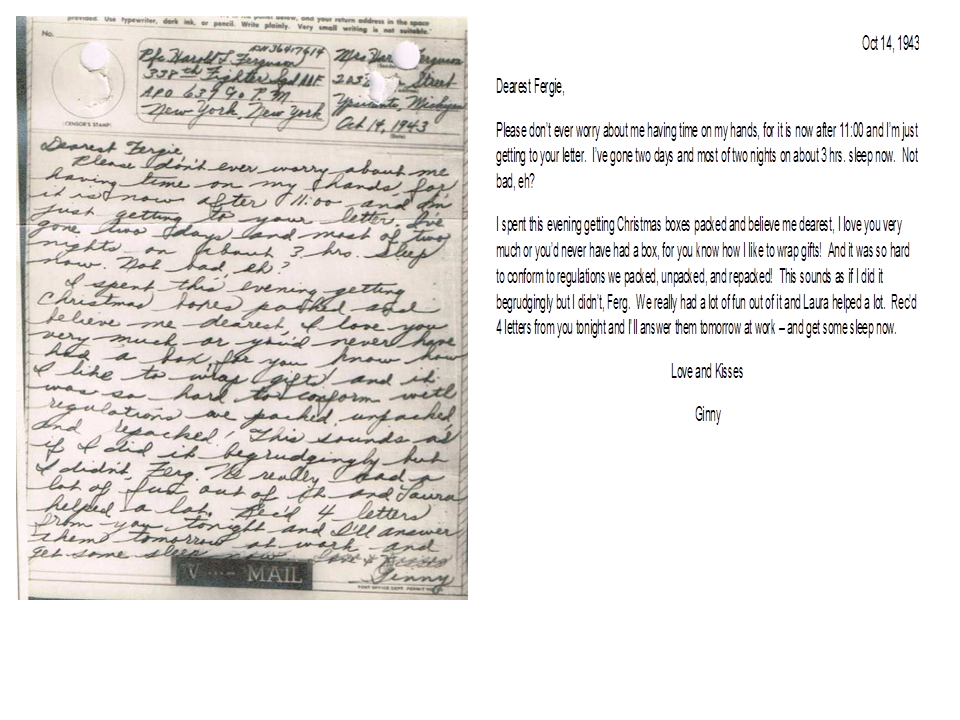 provided. Use typewriter, dark ink, or pencil. Write plainly. Very small writing is not suitable.
No.
ASN 36417614
Pfc Harold L Ferguson
338th Fighter Sqd AAF
APO 637 % P.M
New York, New York
Mrs Har Ferguson
203 Street
Ypsilanti, Michigan
Oct 14, 1943
(CENSOR'S STAMP)
Dearest Fergie
Please don't ever worry about me
having time on my hands, for
it is now after 11:00 and I'm
just getting to your letter. I've
gone two days and most of two
nights on about 3 hrs. sleep
now. Not bad, eh?
I spent this evening getting
Christmas boxes packed and
believe me dearest, I love you
very much or you'd never have
had a box, for you know how
I like to wrap gifts! And it
was so hard to conform with
regulations we packed, unpacked,
and repacked! This sounds as
if I did it begrudgingly but
I didn't, Ferg. We really had a
lot of fun out of it and Laura
helped a lot. Rec'd 4 letters
from you tonight and I'll answer
them tomorrow at work - and
get some sleep now. Love & Kisses
Ginny
V ...- MAIL
POST OFFICE DEPT. PERMIT NO.
Oct 14, 1943
Dearest Fergie,
Please don't ever worry about me having time on my hands, for it is now after 11:00 and I'm just
getting to your letter. I've gone two days and most of two nights on about 3 hrs. sleep now. Not
bad, eh?
I spent this evening getting Christmas boxes packed and believe me dearest, I love you very
much or you'd never have had a box, for you know how I like to wrap gifts! And it was so hard
to conform to regulations we packed, unpacked, and repacked! This sounds as if I did it
begrudgingly but I didn't, Ferg. We really had a lot of fun out of it and Laura helped a lot. Rec'd
4 letters from you tonight and I'll answer them tomorrow at work – and get some sleep now.
Love and Kisses
Ginny